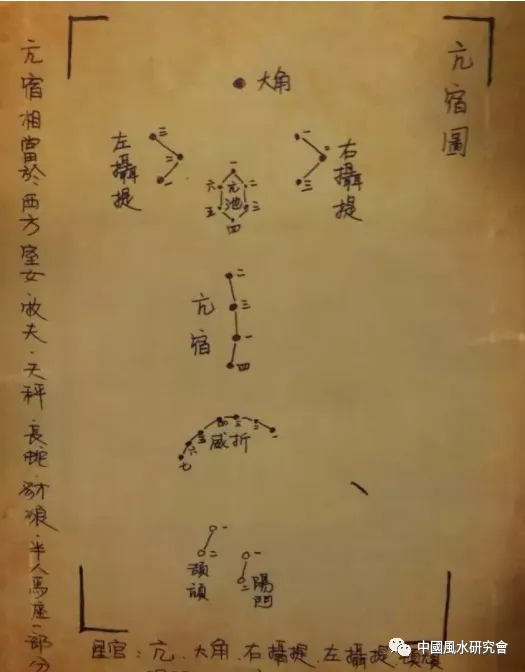 亢宿圖
大角
左攝提
三
二
一
右攝提
一
二
三
亢池
一
二
三
四
五
六
亢宿
二
三
一
四
折威
一
二
三
四
五
六
七
頏頑
一
二
陽門
一
二
亢宿相當於西方室女、牧夫、天秤、長蛇、豺狼、半人馬座一部分
星官：亢、大角、右攝提、左攝提
中國風水研究會